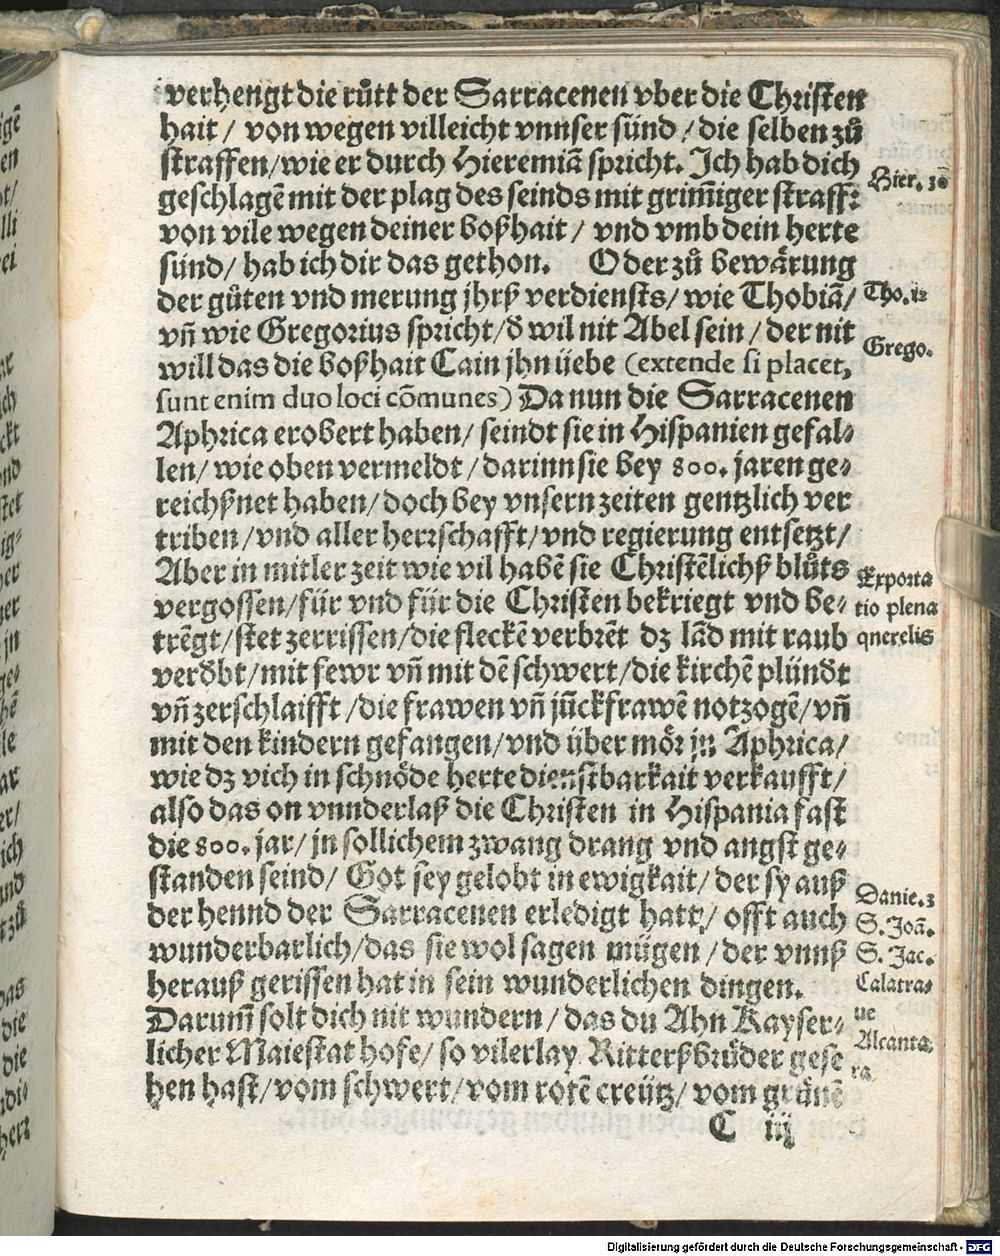 verhengt die růtt der Sarracenen vber die Christen
hait / von wegen villeicht vnnser sünd / die selben zů
straffen/wie er durch Hieremiā spricht. Ich hab dich
geschlagē mit der plag des feinds mit grim̄iger straff:
Hier. 30
von vile wegen deiner boßhait / vnd vmb dein herte
sünd/ hab ich dir das gethon. Oder zů bewärung
der gůten vnd merung jhrß verdiensts/ wie Thobiā/
Tho. 12
vn̄ wie Gregorius spricht/đ wil nit Abel sein / der nit
Grego.
will das die boßhait Cain jhn üebe (extende si placet,
sunt enim duo loci cōmunes) Da nun die Sarracenen
Aphrica erobert haben/ seindt sie in Hispanien gefal⸗
len/ wie oben vermeldt / darinn sie bey 800. jaren ge⸗
reichßnet haben/doch bey vnsern zeiten gentzlich ver
triben/vnd aller herrschafft/vnd regierung entsetzt/
Aber in mitler zeit wie vil habē sie Christēlichß blůts
Exporta
vergossen/für vnd für die Christen bekriegt vnd be⸗
tio plena
trēgt/stet zerrissen/die fleckē verbrēt dz lād mit raub
qnerelis
verđbt/mit fewr vn̄ mit dē schwert/die kirchē plündt
vn̄ zerschlaifft /die frawen vn̄ jūckfrawē notzogē/vn̄
mit den kindern gefangen/vnd über mör jn Aphrica/
wie dz vich in schnöde herte dienstbarkait verkaufft/
also das on vnnderlaß die Christen in Hispania fast
die 800. jar/ jn sollichem zwang drang vnd angst ge⸗
standen seind/ Got sey gelobt in ewigkait/ der sy auß
Danie. 3
der hennd der Sarracenen erledigt hatt/ offt auch
S. Joā.
wunderbarlich/das sie wol sagen mügen / der vnnß
S. Jac.
herauß gerissen hat in sein wunderlichen dingen.
Calatra⸗
Darum̄ solt dich nit wundern / das du Ahn Kayser⸗
ue
licher Maiestat hofe/ so vilerlay Ritterßbrüder gese
Alcanta⸗
hen hast/vom schwert/vom rotē creütz/ vom grünē
ra
C iij
Digitalisierung gefördert durch die Deutsche Forschungsgemeinschaft - DFG